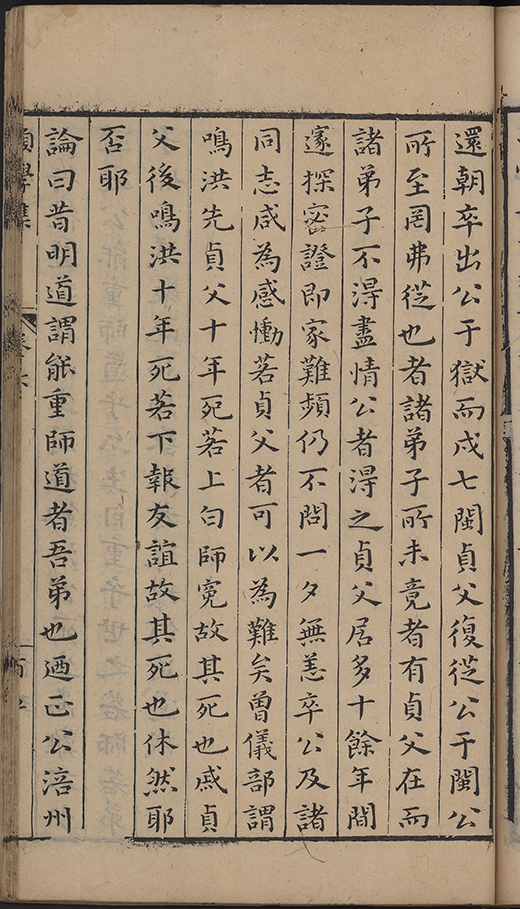 還朝卒出公于獄而戍七閩貞父復從公于閩公
所至罔弗從也者諸弟子所未竟者有貞父在而
諸弟子不淂盡情公者淂之貞父居多十餘年間
邃探密證即家難頻仍不問一夕無恙卒公及諸
同志咸為感慟若貞父者可以為難矣曾儀部謂
鳴洪先貞父十年死若上白師寃故其死也戚貞
父後鳴洪十年死若下報友誼故其死也休然耶
否耶
論曰昔明道謂能重師道者吾弟也迺正公涪州